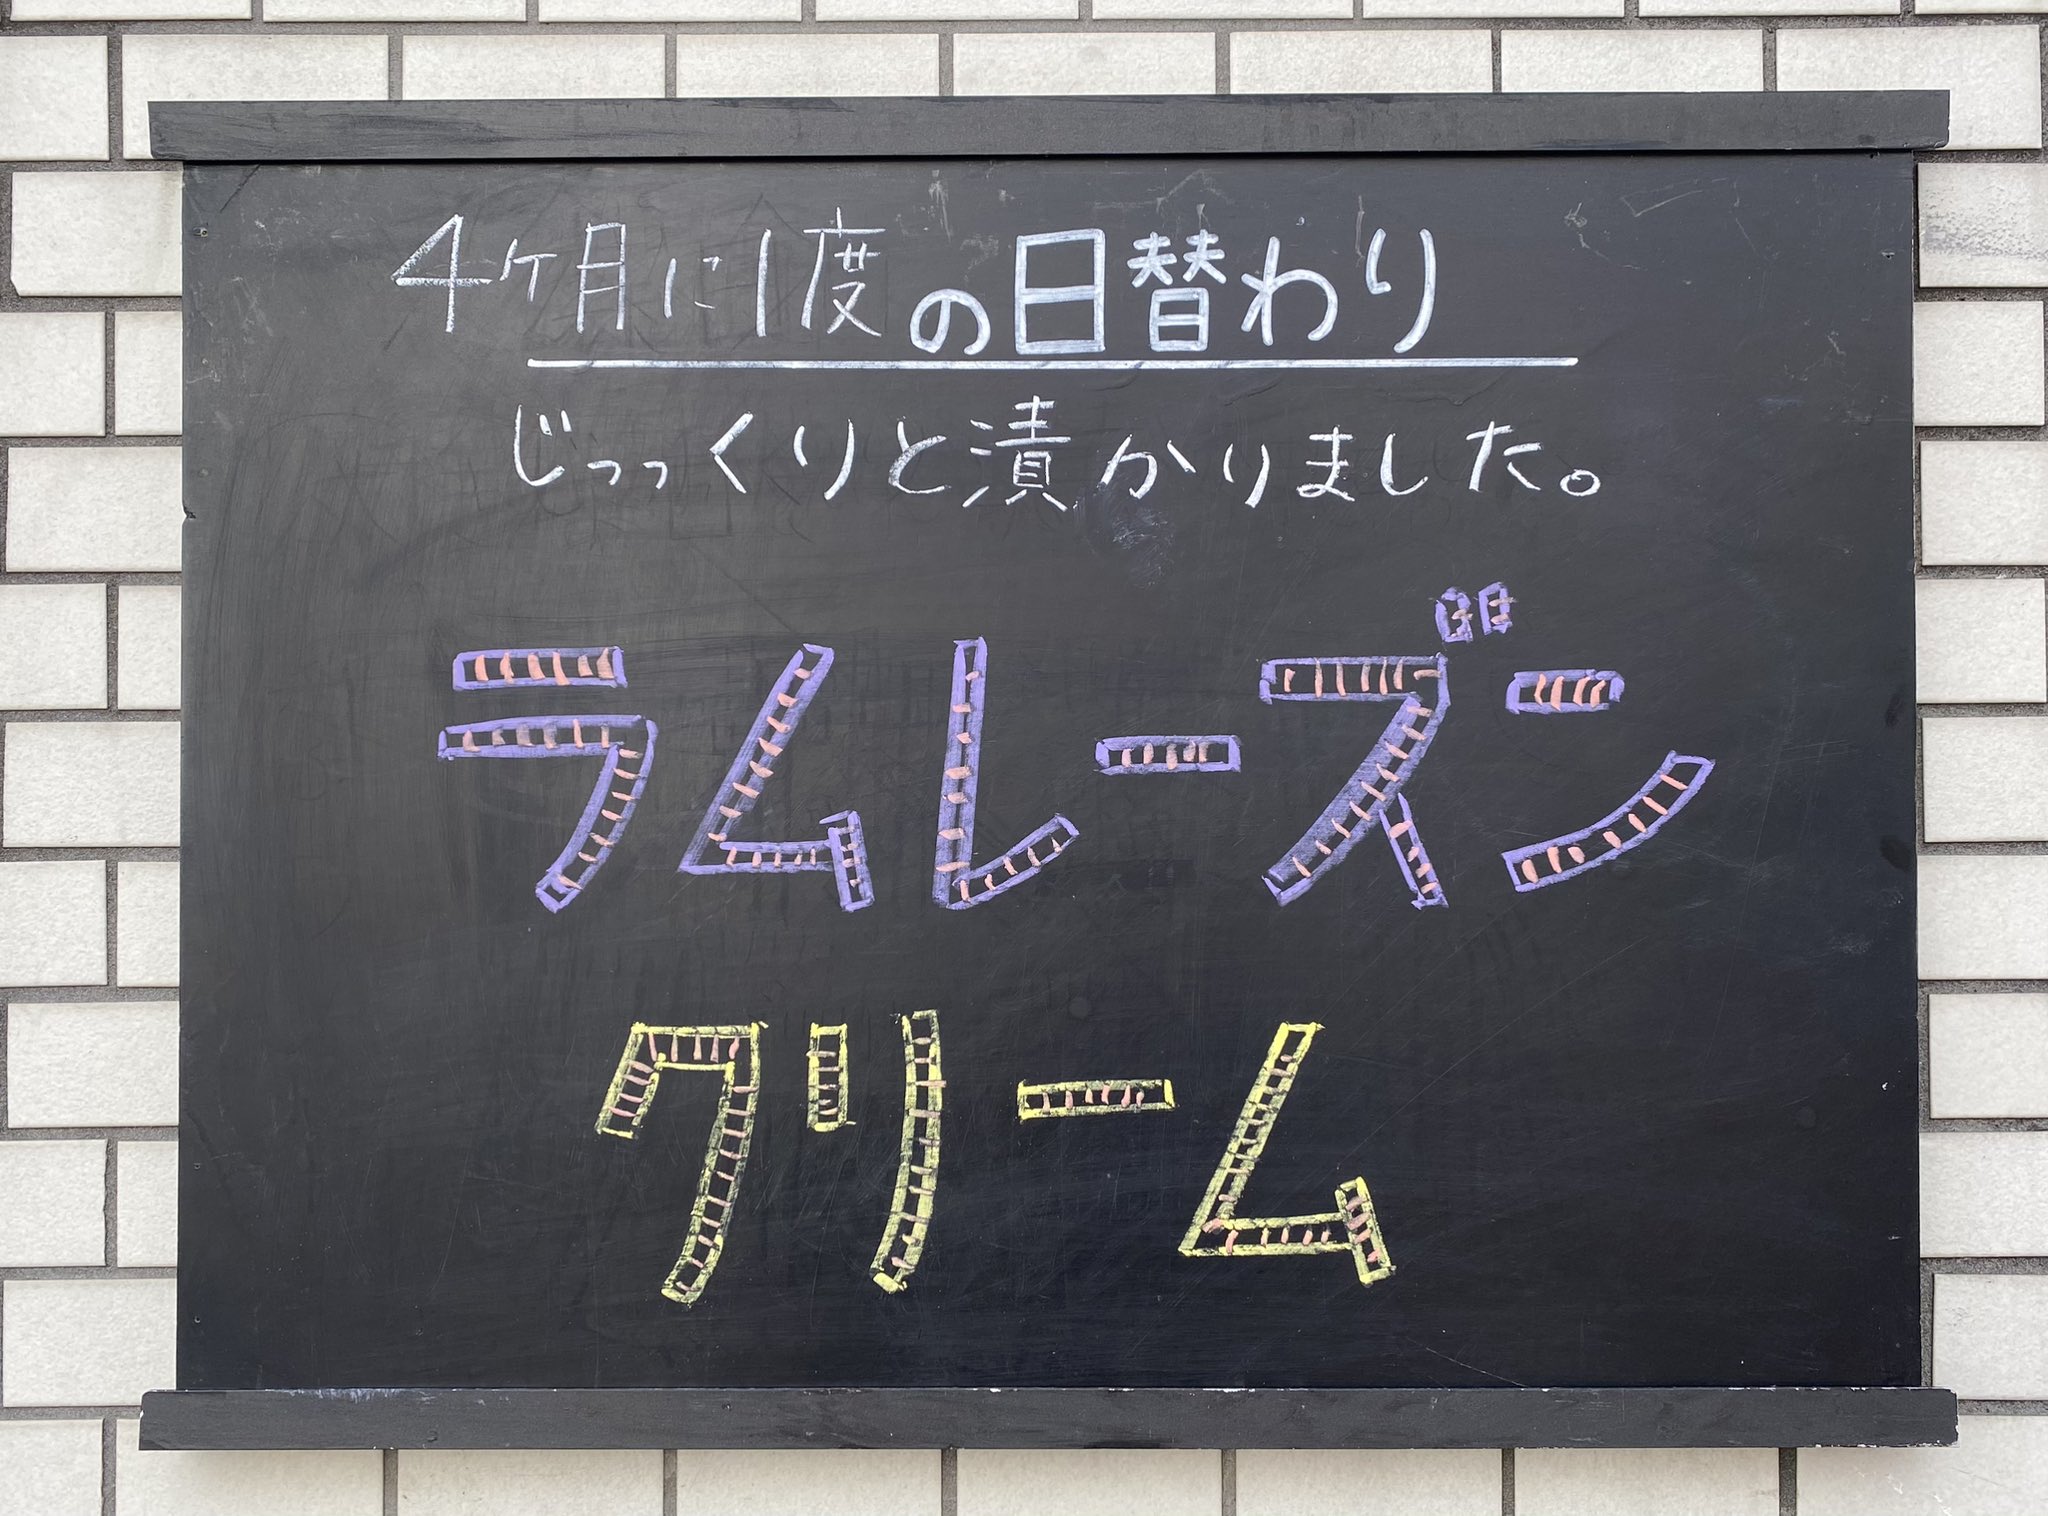 4ヶ月に1度の日替わり
じっっくりと漬かりました。
ラムレーズン
クリーム